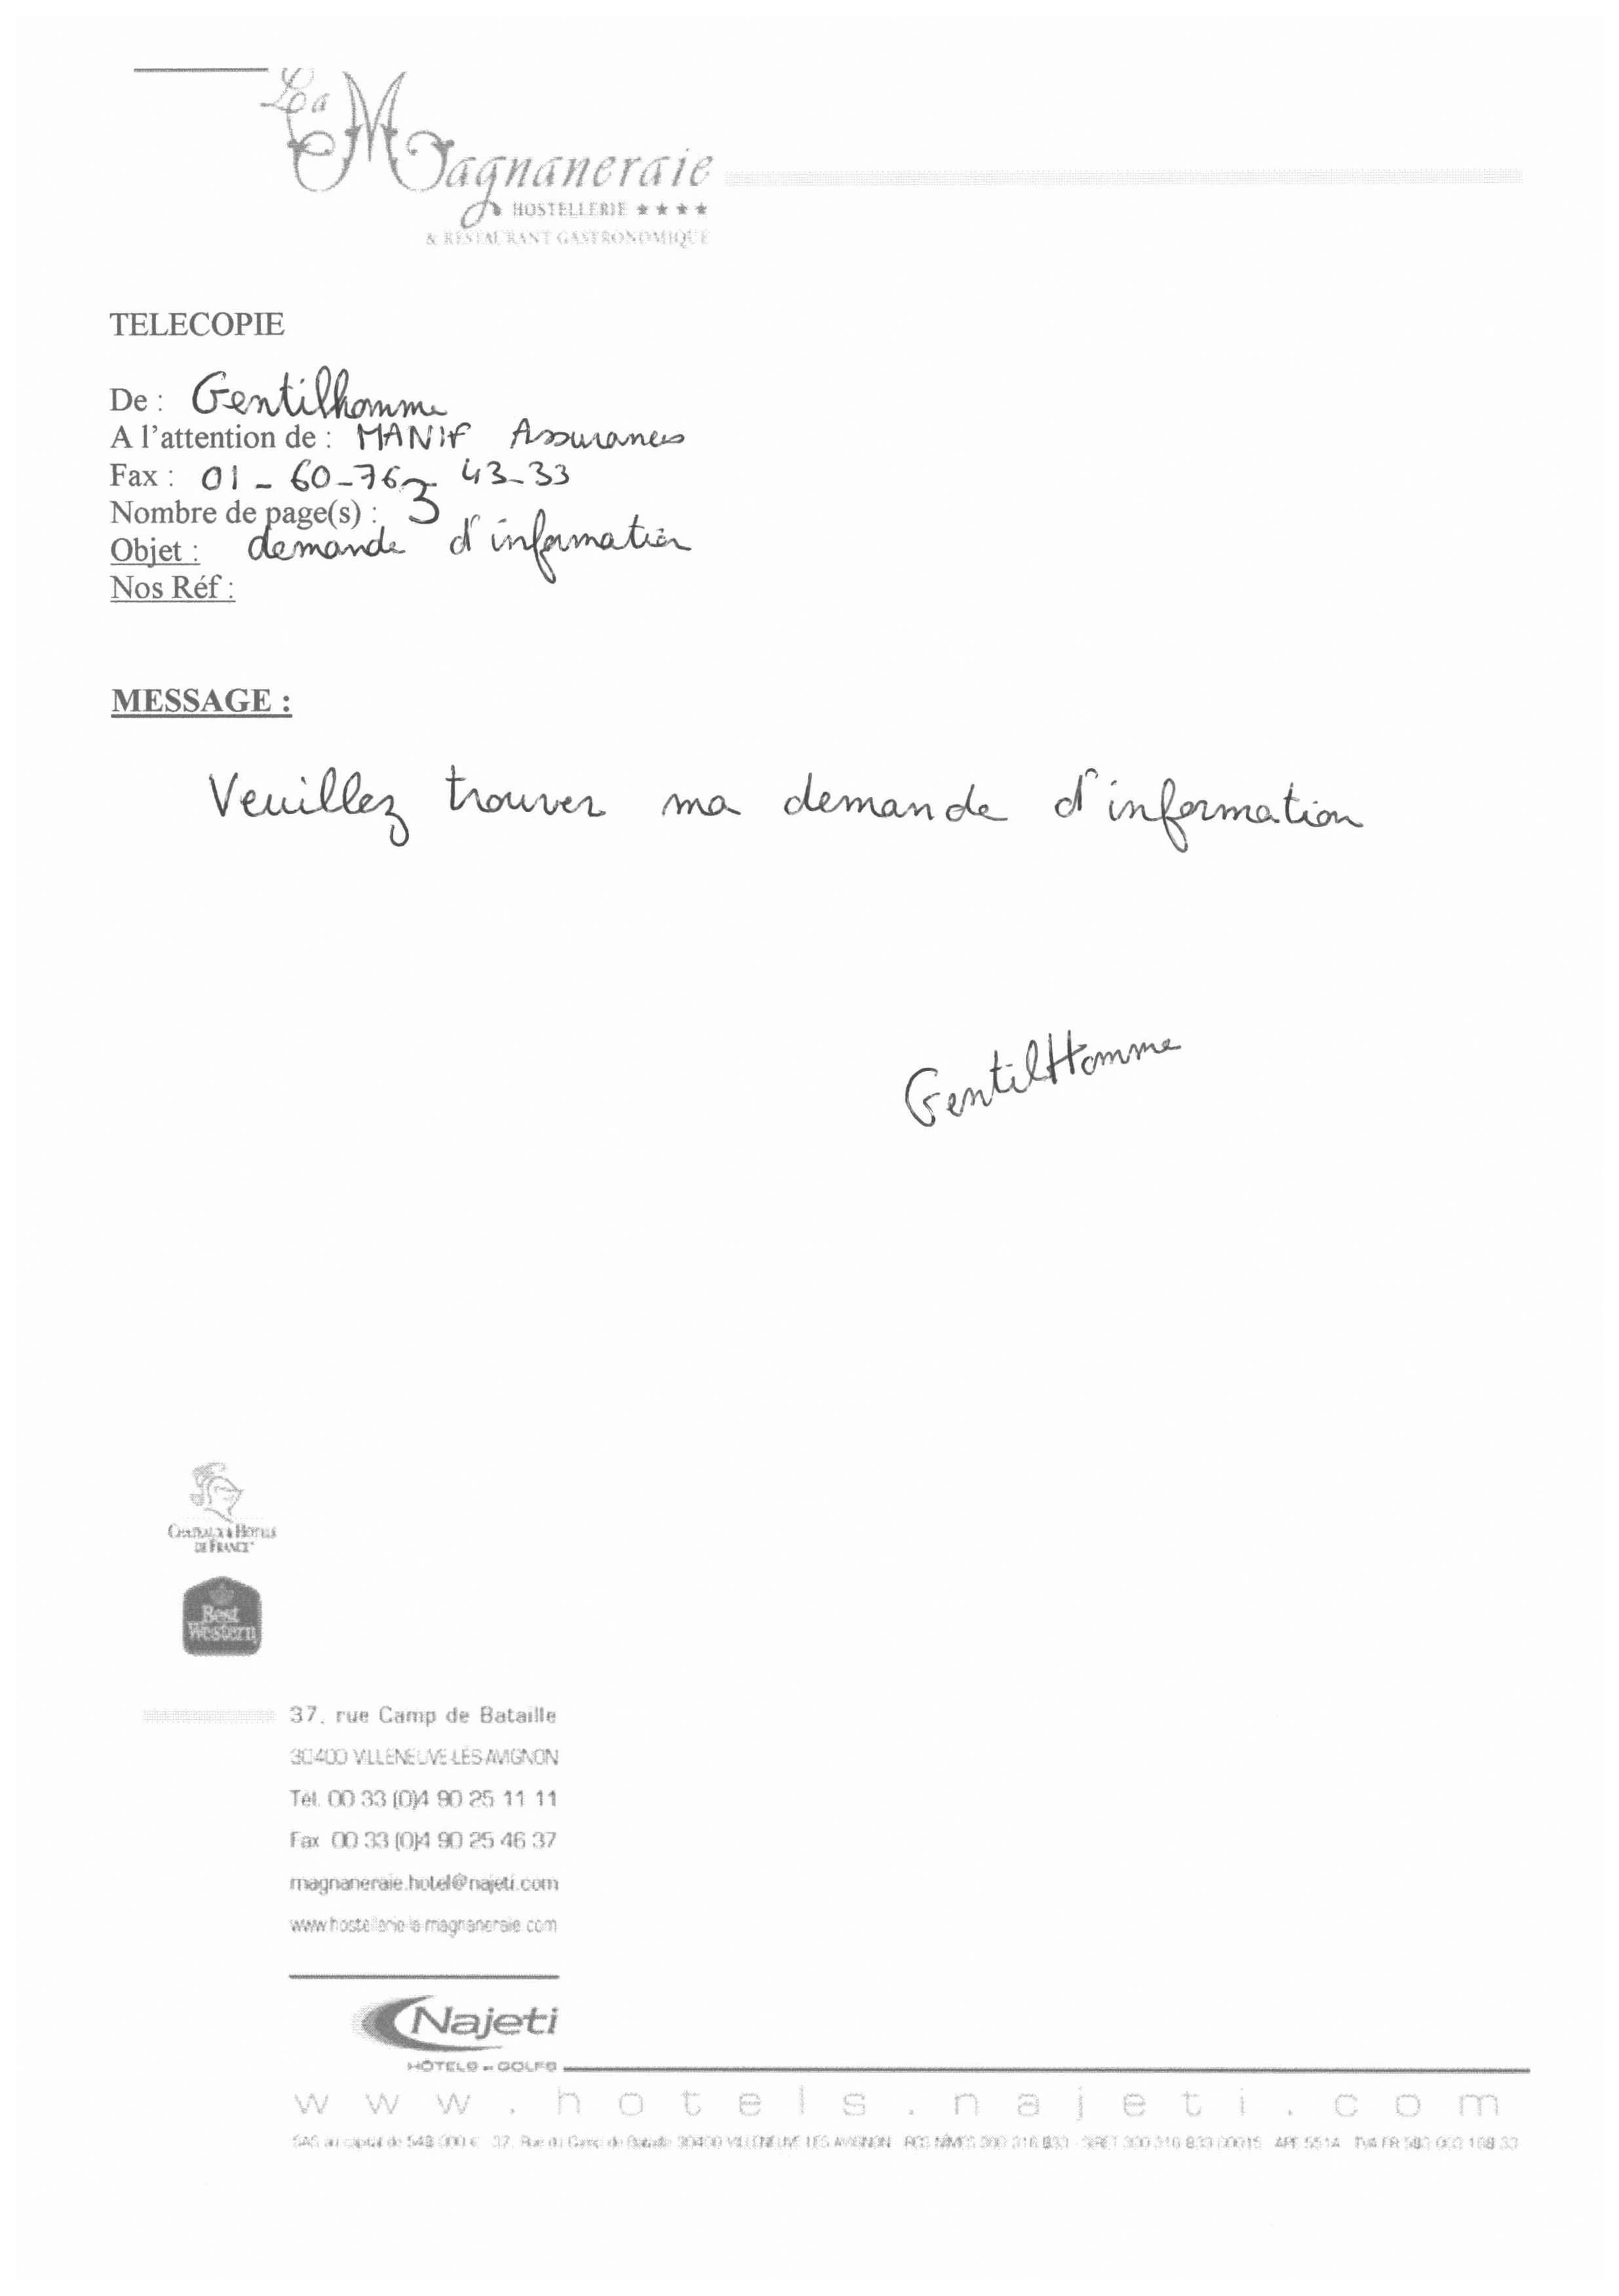 La Magnaneraie
HOSTELLERIE ★★★★
& RESTAURANT GASTRONOMIQUE
TELECOPIE
De : Gentilhomme
A l'attention de : MANIF Assurances
Fax : 01-60-76-43-33
Nombre de page(s) : 3
Objet : demande d'information
Nos Réf :
MESSAGE :
Veuillez trouver ma demande d'information
GentilHomme
CHATEAUX & HOTELS
DE FRANCE
Best
Western
37, rue Camp de Bataille
30400 VILLENEUVE-LÈS-AVIGNON
Tél. 00 33 (0)4 90 25 11 11
Fax 00 33 (0)4 90 25 46 37
magnaneraie.hotel@najeti.com
www.hostellerie-la-magnaneraie.com
Najeti
HÔTELS - GOLFS
www.hotels.najeti.com
SAS au capital de 548 000 € 37, Rue du Camp de Bataille 30400 VILLENEUVE LES AVIGNON RCS NÎMES 300 316 833 SIRET 300 316 833 00015 APE 551A TVA FR